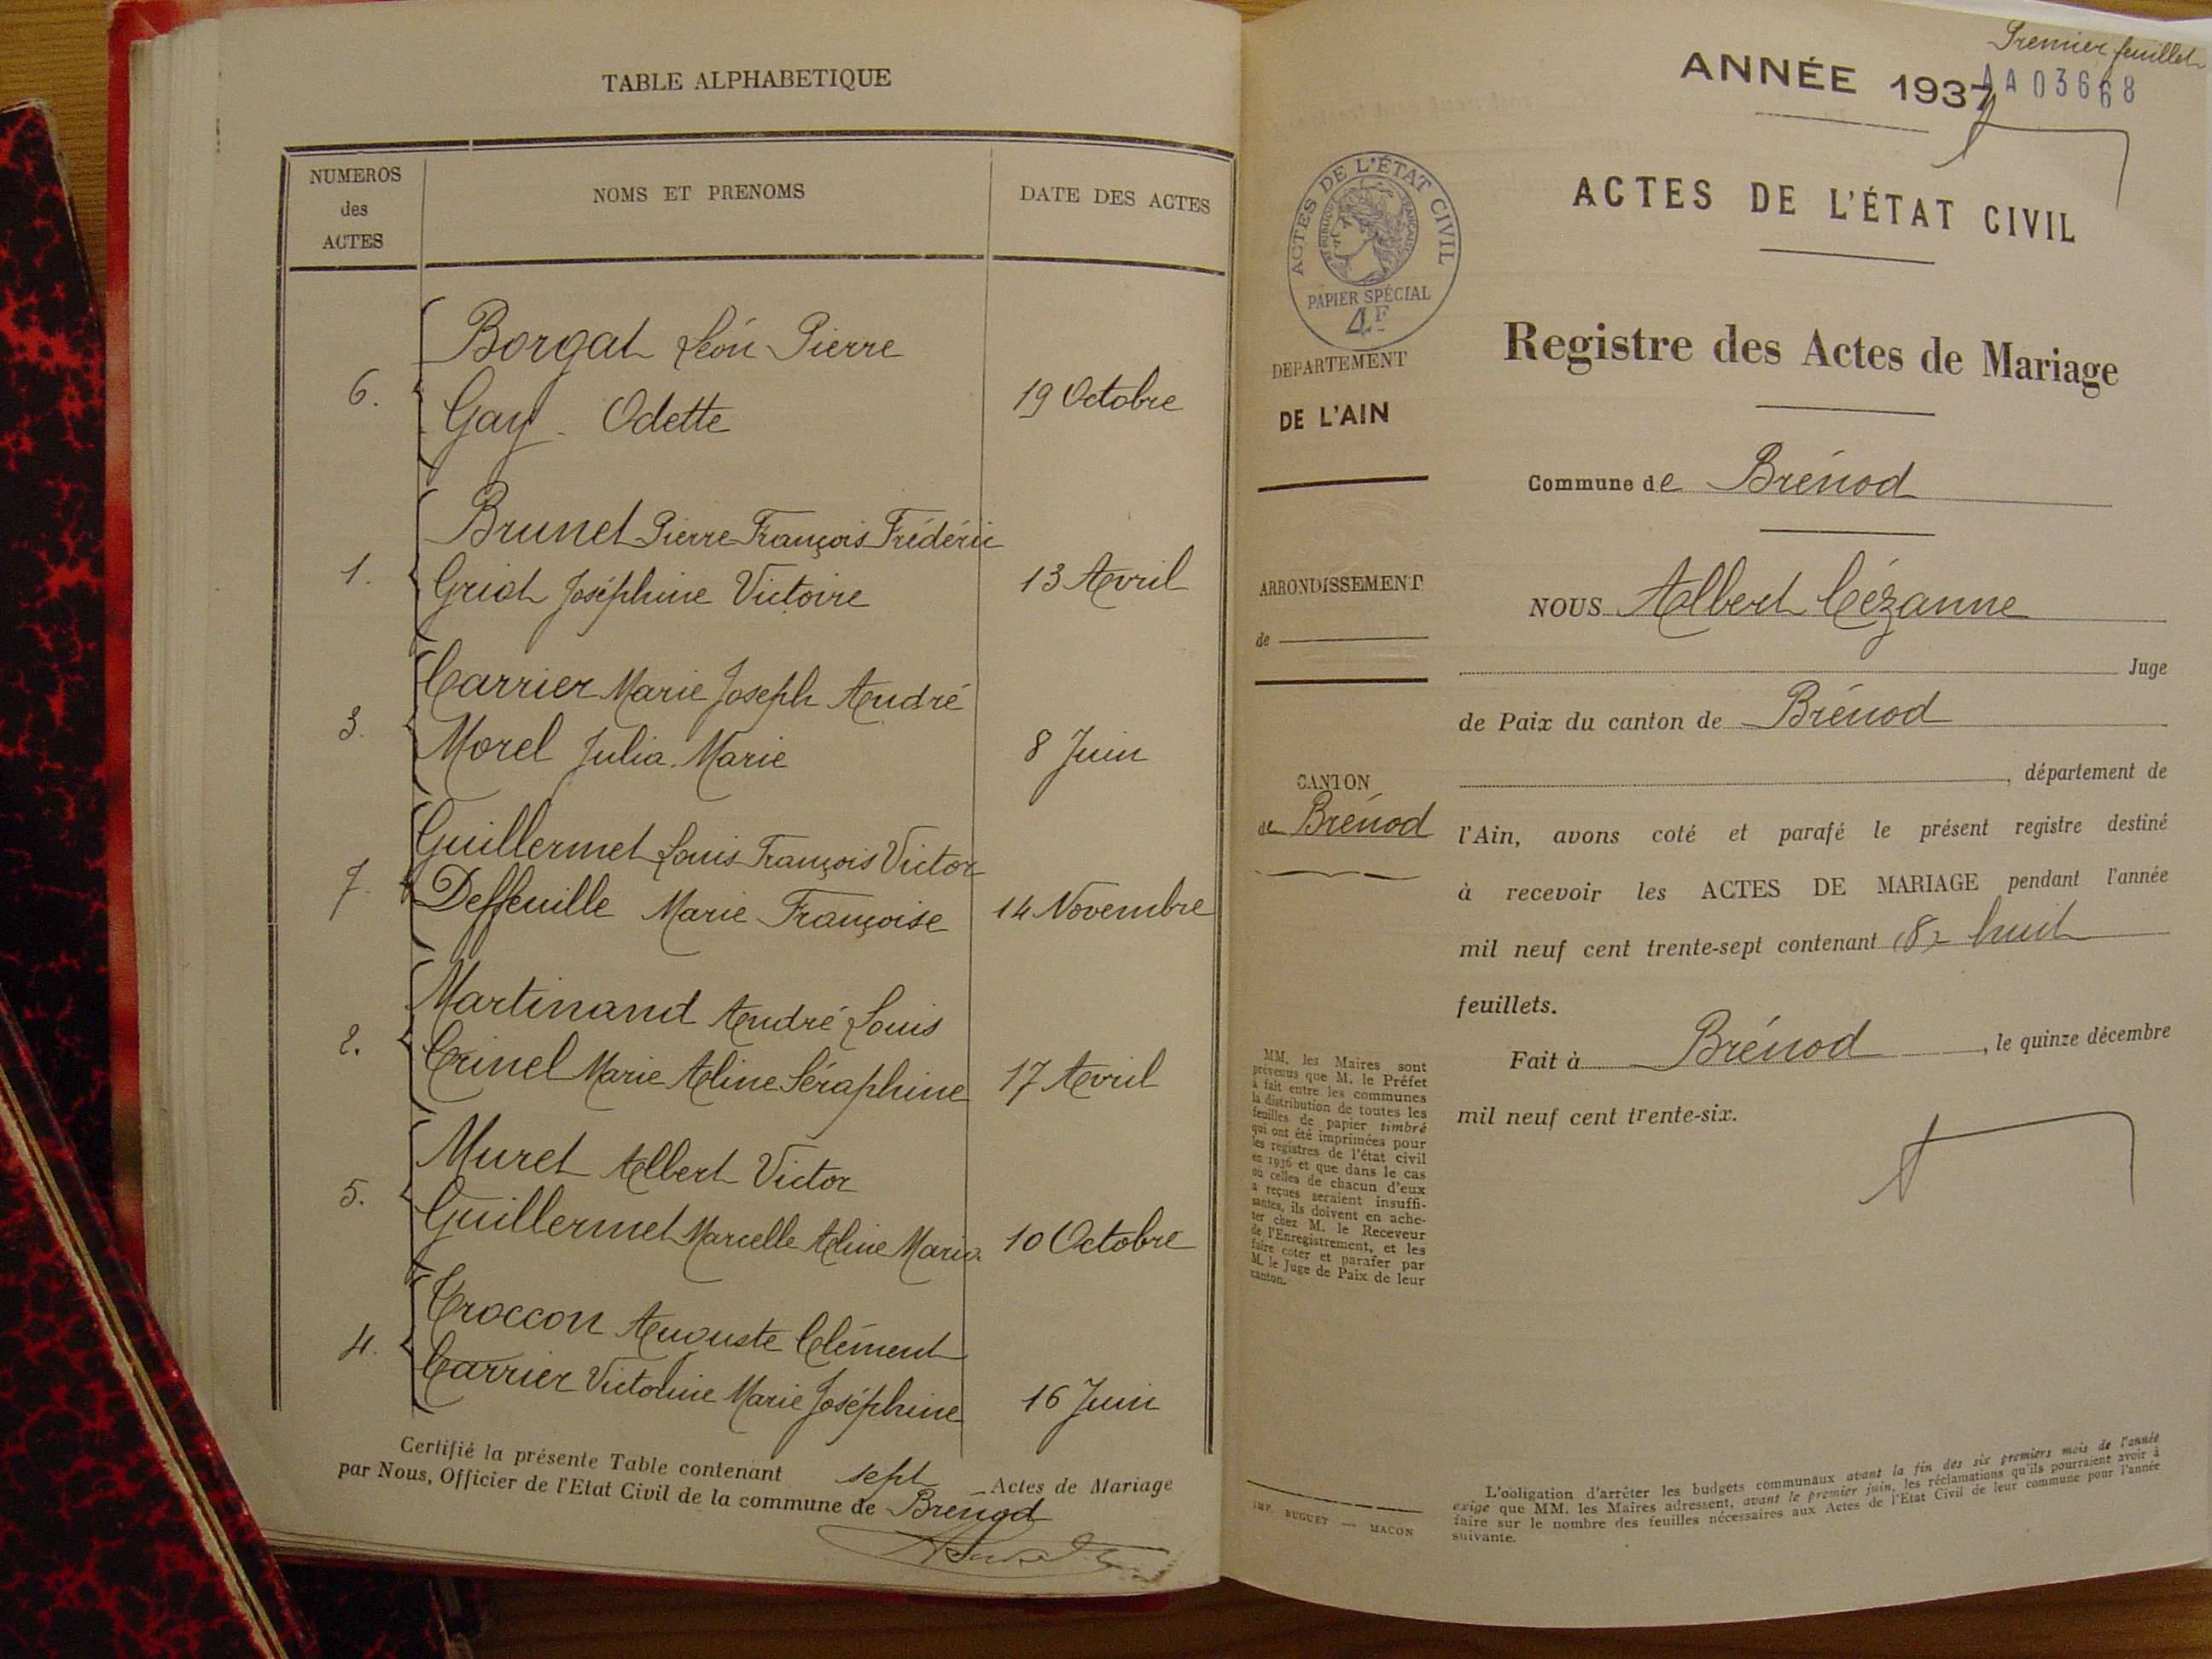 TABLE ALPHABETIQUE
NUMEROS
des
ACTES
NOMS ET PRENOMS
DATE DES ACTES
Borgat Léon Pierre
6.
Gay Odette
19 Octobre
Brunet Pierre François Frédéric
1.
Griot Joséphine Victoire
13 Avril
Carrier Marie Joseph André
3.
Morel Julia Marie
8 Juin
Guillermet Louis François Victor
7.
Deffeuille Marie Françoise
14 Novembre
Martinand André Louis
2.
Crinel Marie Aline Séraphine
17 Avril
Muret Albert Victor
5.
Guillermet Marcelle Aline Maria
10 Octobre
Troccon Auguste Clément
4.
Carrier Victorine Marie Joséphine
16 Juin
Certifié la présente Table contenant sept Actes de Mariage
par Nous, Officier de l'Etat Civil de la commune de Brénod
Premier feuillet
ANNÉE 1937
AA03668
ACTES DE L'ÉTAT CIVIL
ACTES DE L'ÉTAT CIVIL
RÉPUBLIQUE FRANÇAISE
PAPIER SPÉCIAL
4F
Registre des Actes de Mariage
DEPARTEMENT
DE L'AIN
Commune de Brénod
ARRONDISSEMENT
de
NOUS Albert Cézanne
Juge
de Paix du canton de Brénod
, département de
CANTON
de Brénod
l'Ain, avons coté et parafé le présent registre destiné
à recevoir les ACTES DE MARIAGE pendant l'année
mil neuf cent trente-sept contenant (8) huit
feuillets.
Fait à Brénod, le quinze décembre
mil neuf cent trente-six.
MM. les Maires sont
prévenus que M. le Préfet
a fait entre les communes
la distribution de toutes les
feuilles de papier timbré
qui ont été imprimées pour
les registres de l'état civil
en 1936 et que dans le cas
où celles de chacun d'eux
a reçues seraient insuffi-
santes, ils doivent en ache-
ter chez M. le Receveur
de l'Enregistrement, et les
faire coter et parafer par
M. le Juge de Paix de leur
canton.
IMP. BUGUET — MACON
L'obligation d'arrêter les budgets communaux avant la fin des six premiers mois de l'année
exige que MM. les Maires adressent, avant le premier juin, les réclamations qu'ils pourraient avoir à
faire sur le nombre des feuilles nécessaires aux Actes de l'Etat Civil de leur commune pour l'année
suivante.